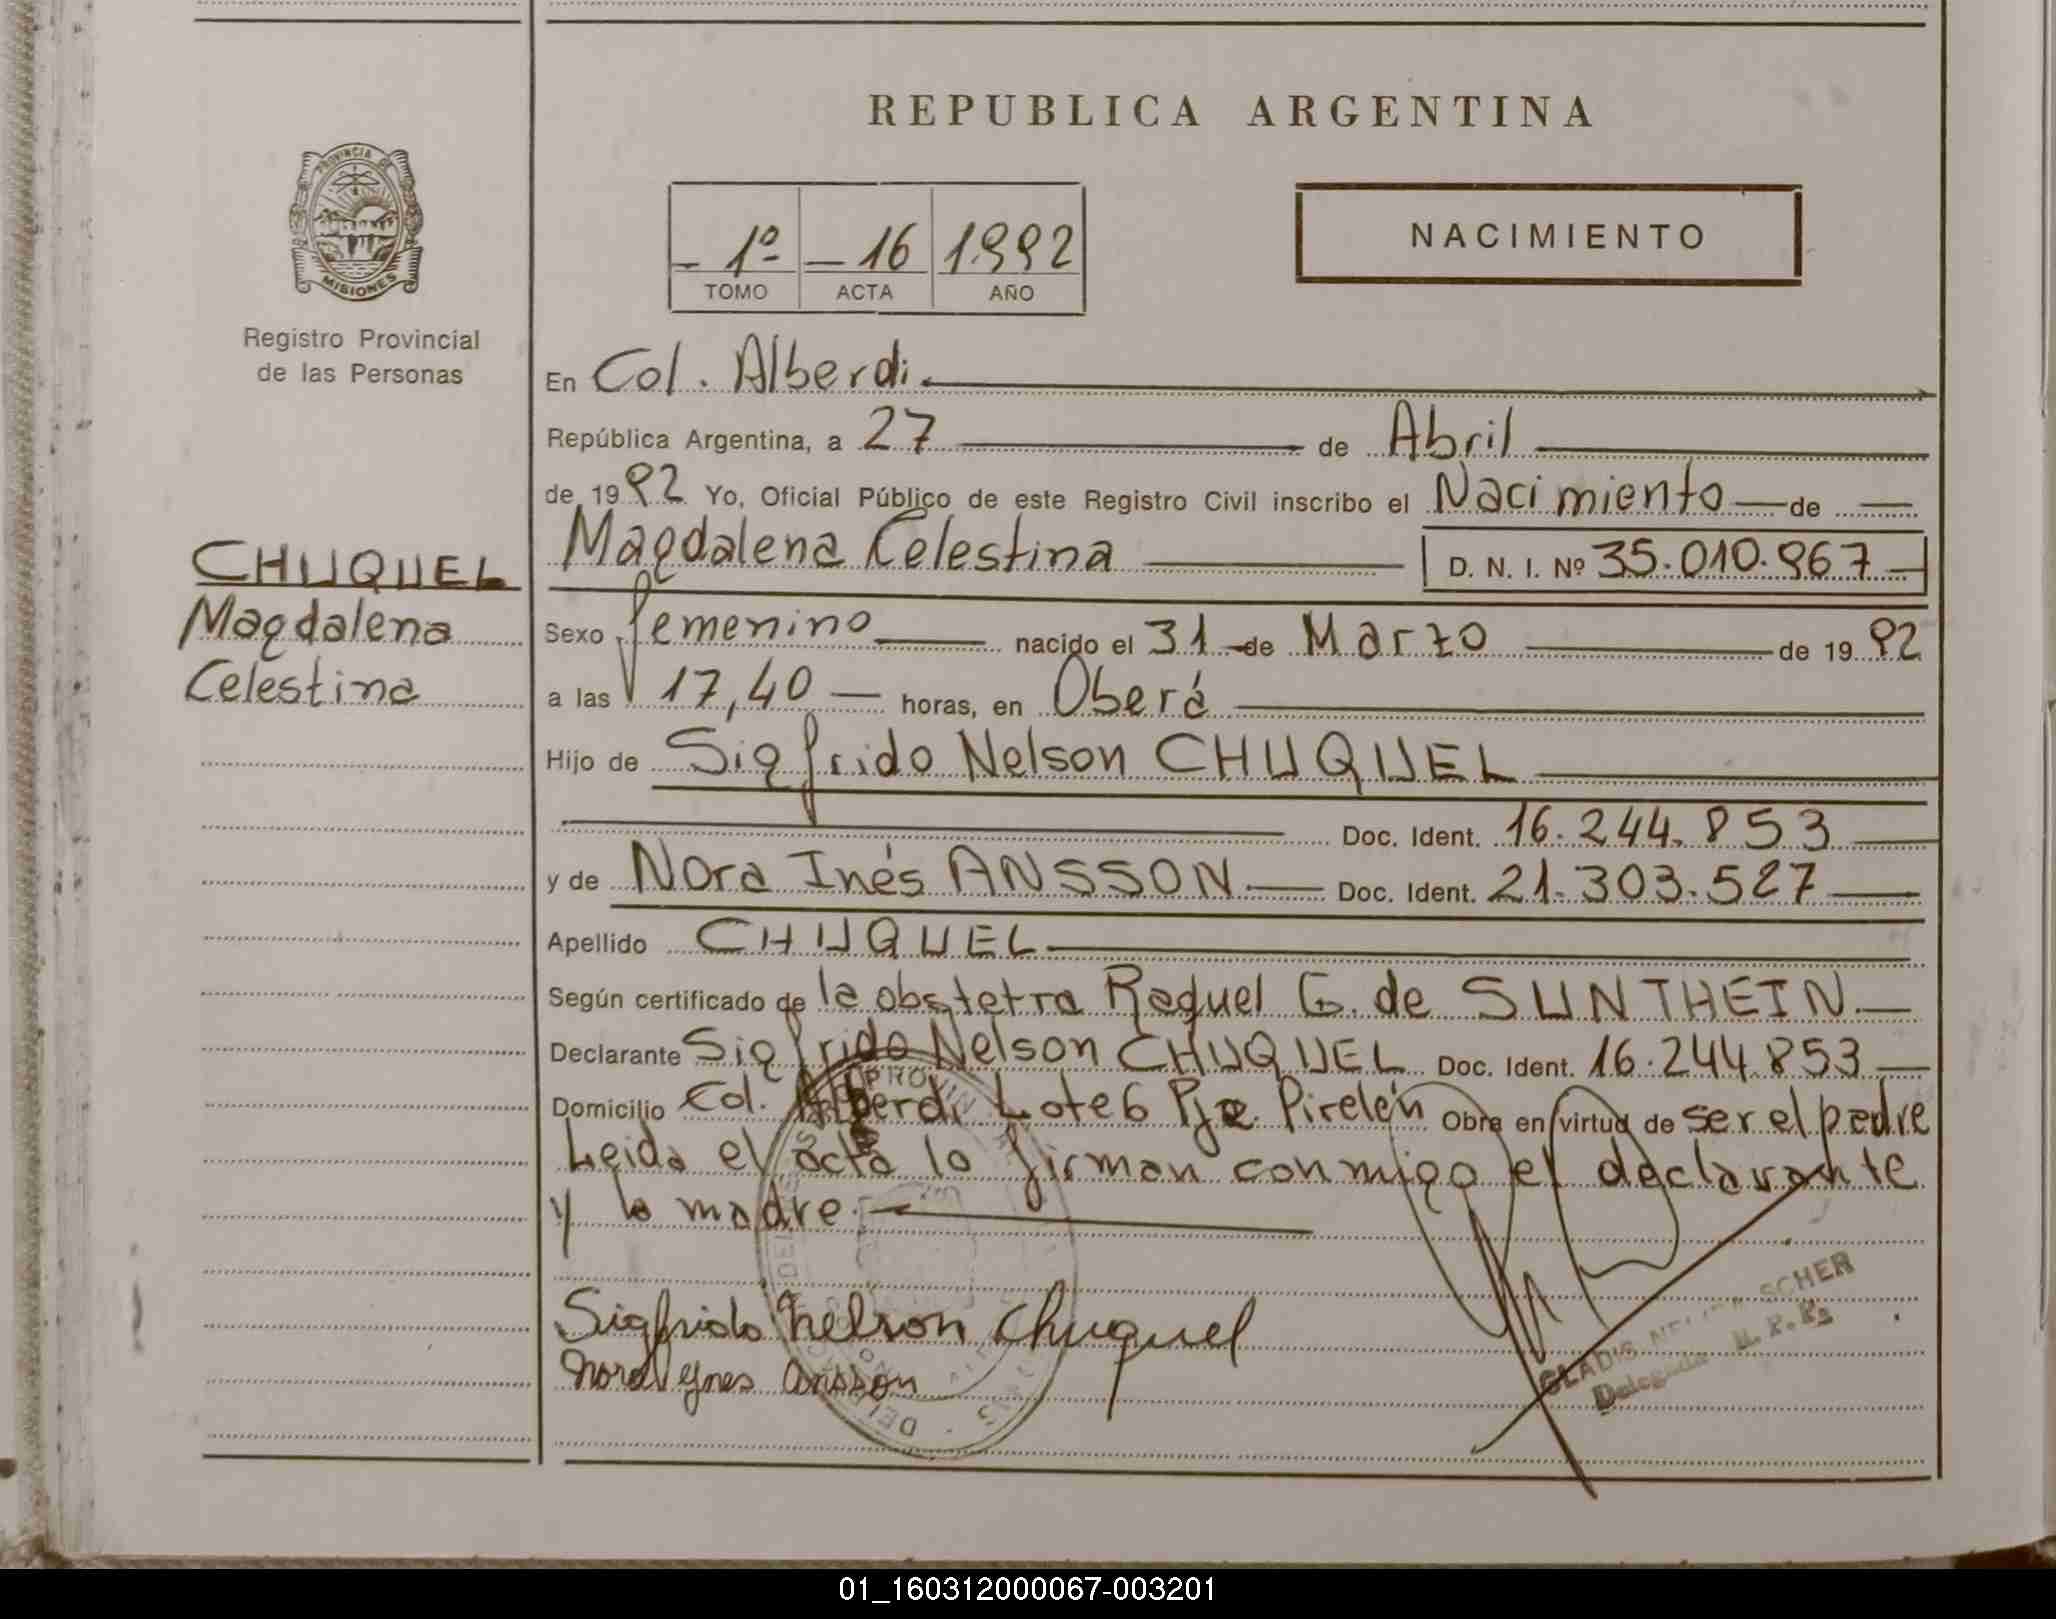 REPUBLICA ARGENTINA
PROVINCIA DE
MISIONES
Registro Provincial
de las Personas
1º 16 1992
TOMO ACTA AÑO
NACIMIENTO
En Col. Alberdi.
República Argentina, a 27 de Abril
de 1992 Yo, Oficial Público de este Registro Civil inscribo el Nacimiento de
CHUQUEL
Magdalena
Celestina
Magdalena Celestina D. N. I. Nº 35.010.967
Sexo femenino nacido el 31 de Marzo de 1992
a las 17,40 horas, en Oberá
Hijo de Sigfrido Nelson CHUQUEL
Doc. Ident. 16.244.853
y de Nora Inés ANSSON. Doc. Ident. 21.303.527
Apellido CHUQUEL
Según certificado de la obstetra Raquel G. de SUNTHEIN.
Declarante Sigfrido Nelson CHUQUEL Doc. Ident. 16.244.853
Domicilio Col. Alberdi Lote 6 Pje. Pirelén Obra en virtud de ser el padre
Leida el acta lo firman conmigo el declarante
y la madre.
Sigfrido Nelson Chuquel
Nora Ynes Ansson
GLADIS SCHER
Delegada
01_160312000067-003201